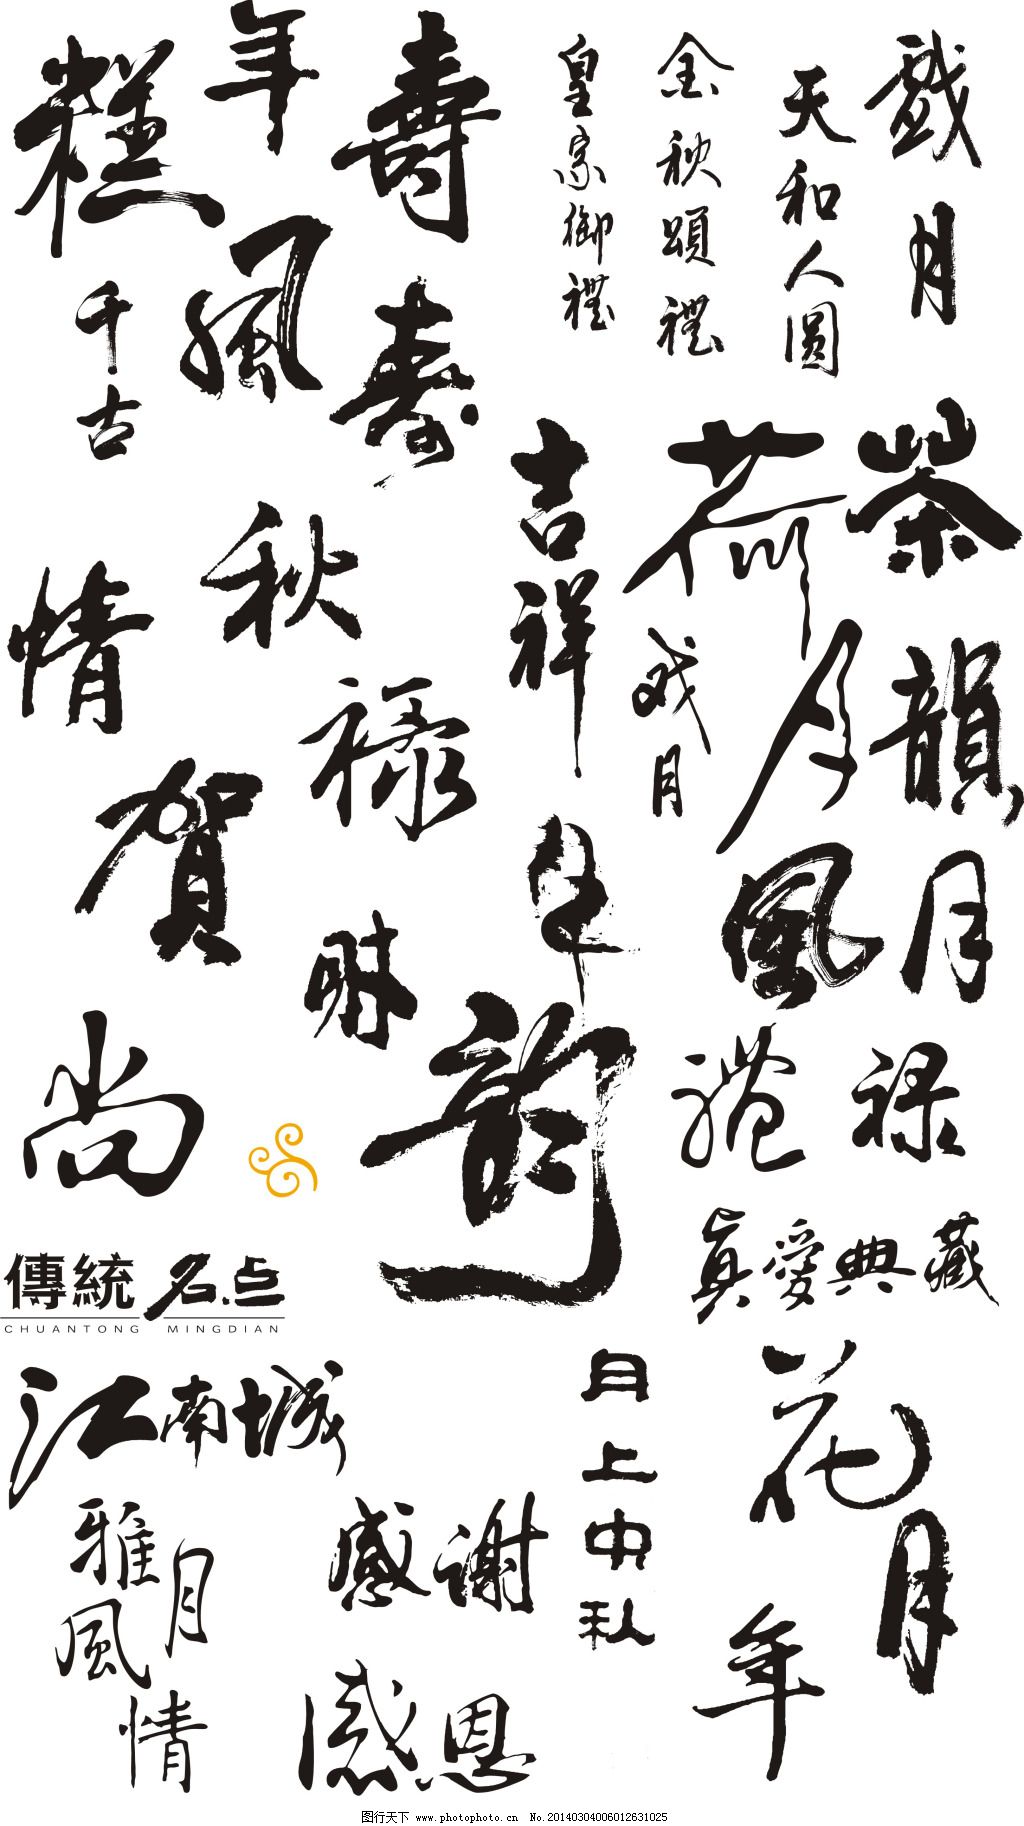 糕
年
壽
皇家御禮
金秋頌禮
天和人圓
戲月
風
千古
壽
吉祥
荷月
茶韻
秋
情
戏月
禄
賀
風
月
韵
尚
禮
禄
傳統名点
CHUANTONG MINGDIAN
真愛典藏
江南城
月上中秋
花月年
雅月風情
感谢
感恩
图行天下 www.photophoto.cn No.20140304006012631025